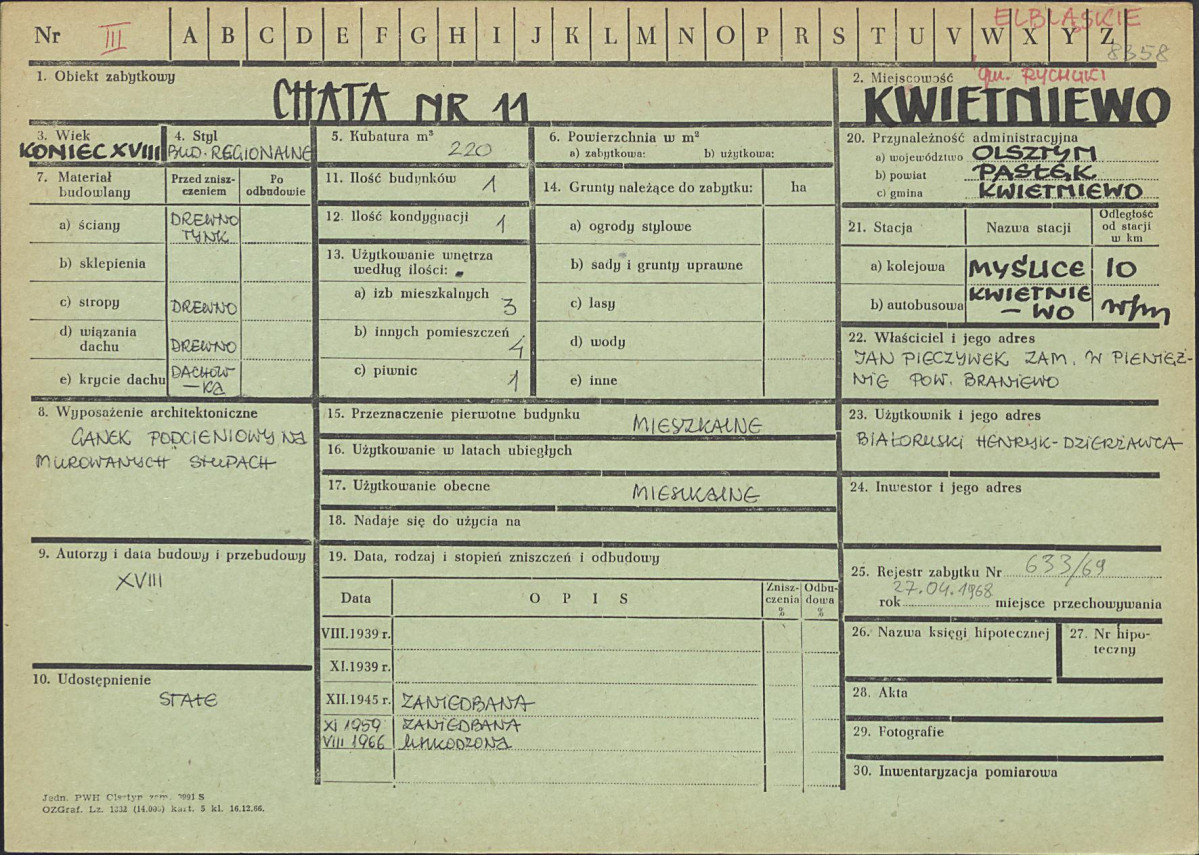 ELBLĄSKIE
Nr III A B C D E F G H I J K L M N O P R S T U V W X Y Z
8358
1. Obiekt zabytkowy
CHATA NR 11
2. Miejscowość
gm. RYCHLIKI
KWIETNIEWO
3. Wiek
KONIEC XVIII
4. Styl
BUD. REGIONALNE
5. Kubatura m³
220
6. Powierzchnia w m²
a) zabytkowa: b) użytkowa:
20. Przynależność administracyjna
a) województwo OLSZTYN
b) powiat PASŁĘK
c) gmina KWIETNIEWO
7. Materiał budowlany
Przed zniszczeniem
Po odbudowie
a) ściany DREWNO
TYNK
b) sklepienia
c) stropy DREWNO
d) wiązania
dachu DREWNO
e) krycie dachu DACHÓW
-KA
11. Ilość budynków 1
12. Ilość kondygnacji 1
13. Użytkowanie wnętrza
według ilości:
a) izb mieszkalnych 3
b) innych pomieszczeń 4
c) piwnic 1
14. Grunty należące do zabytku: ha
a) ogrody stylowe
b) sady i grunty uprawne
c) lasy
d) wody
e) inne
21. Stacja Nazwa stacji
Odległość
od stacji
w km
a) kolejowa MYŚLICE 10
b) autobusowa KWIETNIE
- WO w/m
22. Właściciel i jego adres
JAN PIECZYWEK ZAM. W PIENIĘŻ-
NIE POW. BRANIEWO
8. Wyposażenie architektoniczne
GANEK PODCIENIOWY NA
MUROWANYCH SŁUPACH
15. Przeznaczenie pierwotne budynku
MIESZKALNE
16. Użytkowanie w latach ubiegłych
17. Użytkowanie obecne
MIESZKALNE
18. Nadaje się do użycia na
23. Użytkownik i jego adres
BIAŁORUSKI HENRYK - DZIERŻAWCA
24. Inwestor i jego adres
9. Autorzy i data budowy i przebudowy
XVIII
19. Data, rodzaj i stopień zniszczeń i odbudowy
Data OPIS
Znisz-
czenia
%
Odbu-
dowa
%
VIII.1939 r.
XI.1939 r.
XII.1945 r. ZANIEDBANA
XI 1959 ZANIEDBANA
VIII 1966
25. Rejestr zabytku Nr 633/69
27.04.1968
rok miejsce przechowywania
26. Nazwa księgi hipotecznej
27. Nr hipo-
teczny
10. Udostępnienie
STAŁE
28. Akta
29. Fotografie
30. Inwentaryzacja pomiarowa
Jedn. PWH Olsztyn zam. 3991 S
OZGraf. Lz. 1332 (14.000) kart. 5 kl. 16.12.66.